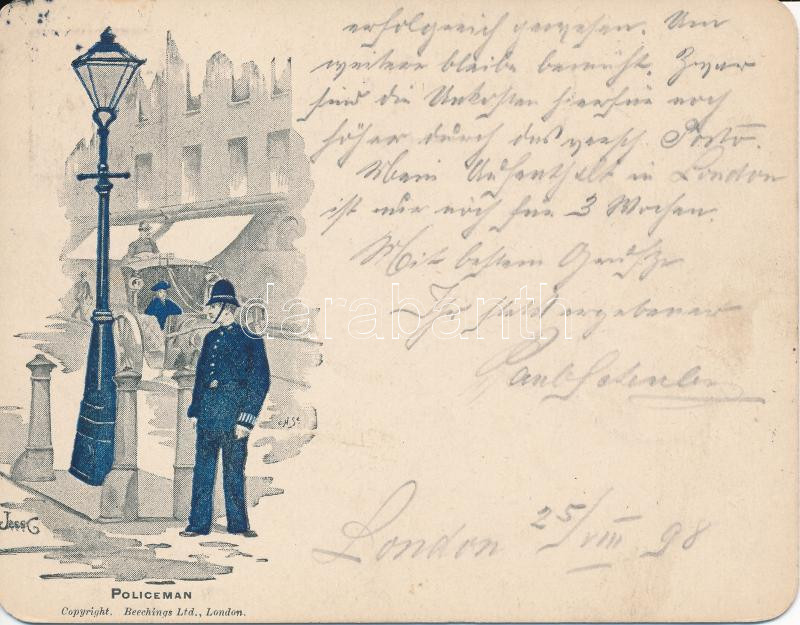 erfolgreich gewesen. Um
weitere bleibe bemüht. Zwar
sind die Unkosten hierfür noch
höher durch das versch. Porto.
Mein Aufenthalt in London
ist nur noch für 3 Wochen.
Mit bestem Grusse
Ihr stets ergebener
London 25/VIII 98
darabanth
Jess G
POLICEMAN
Copyright. Beechings Ltd., London.